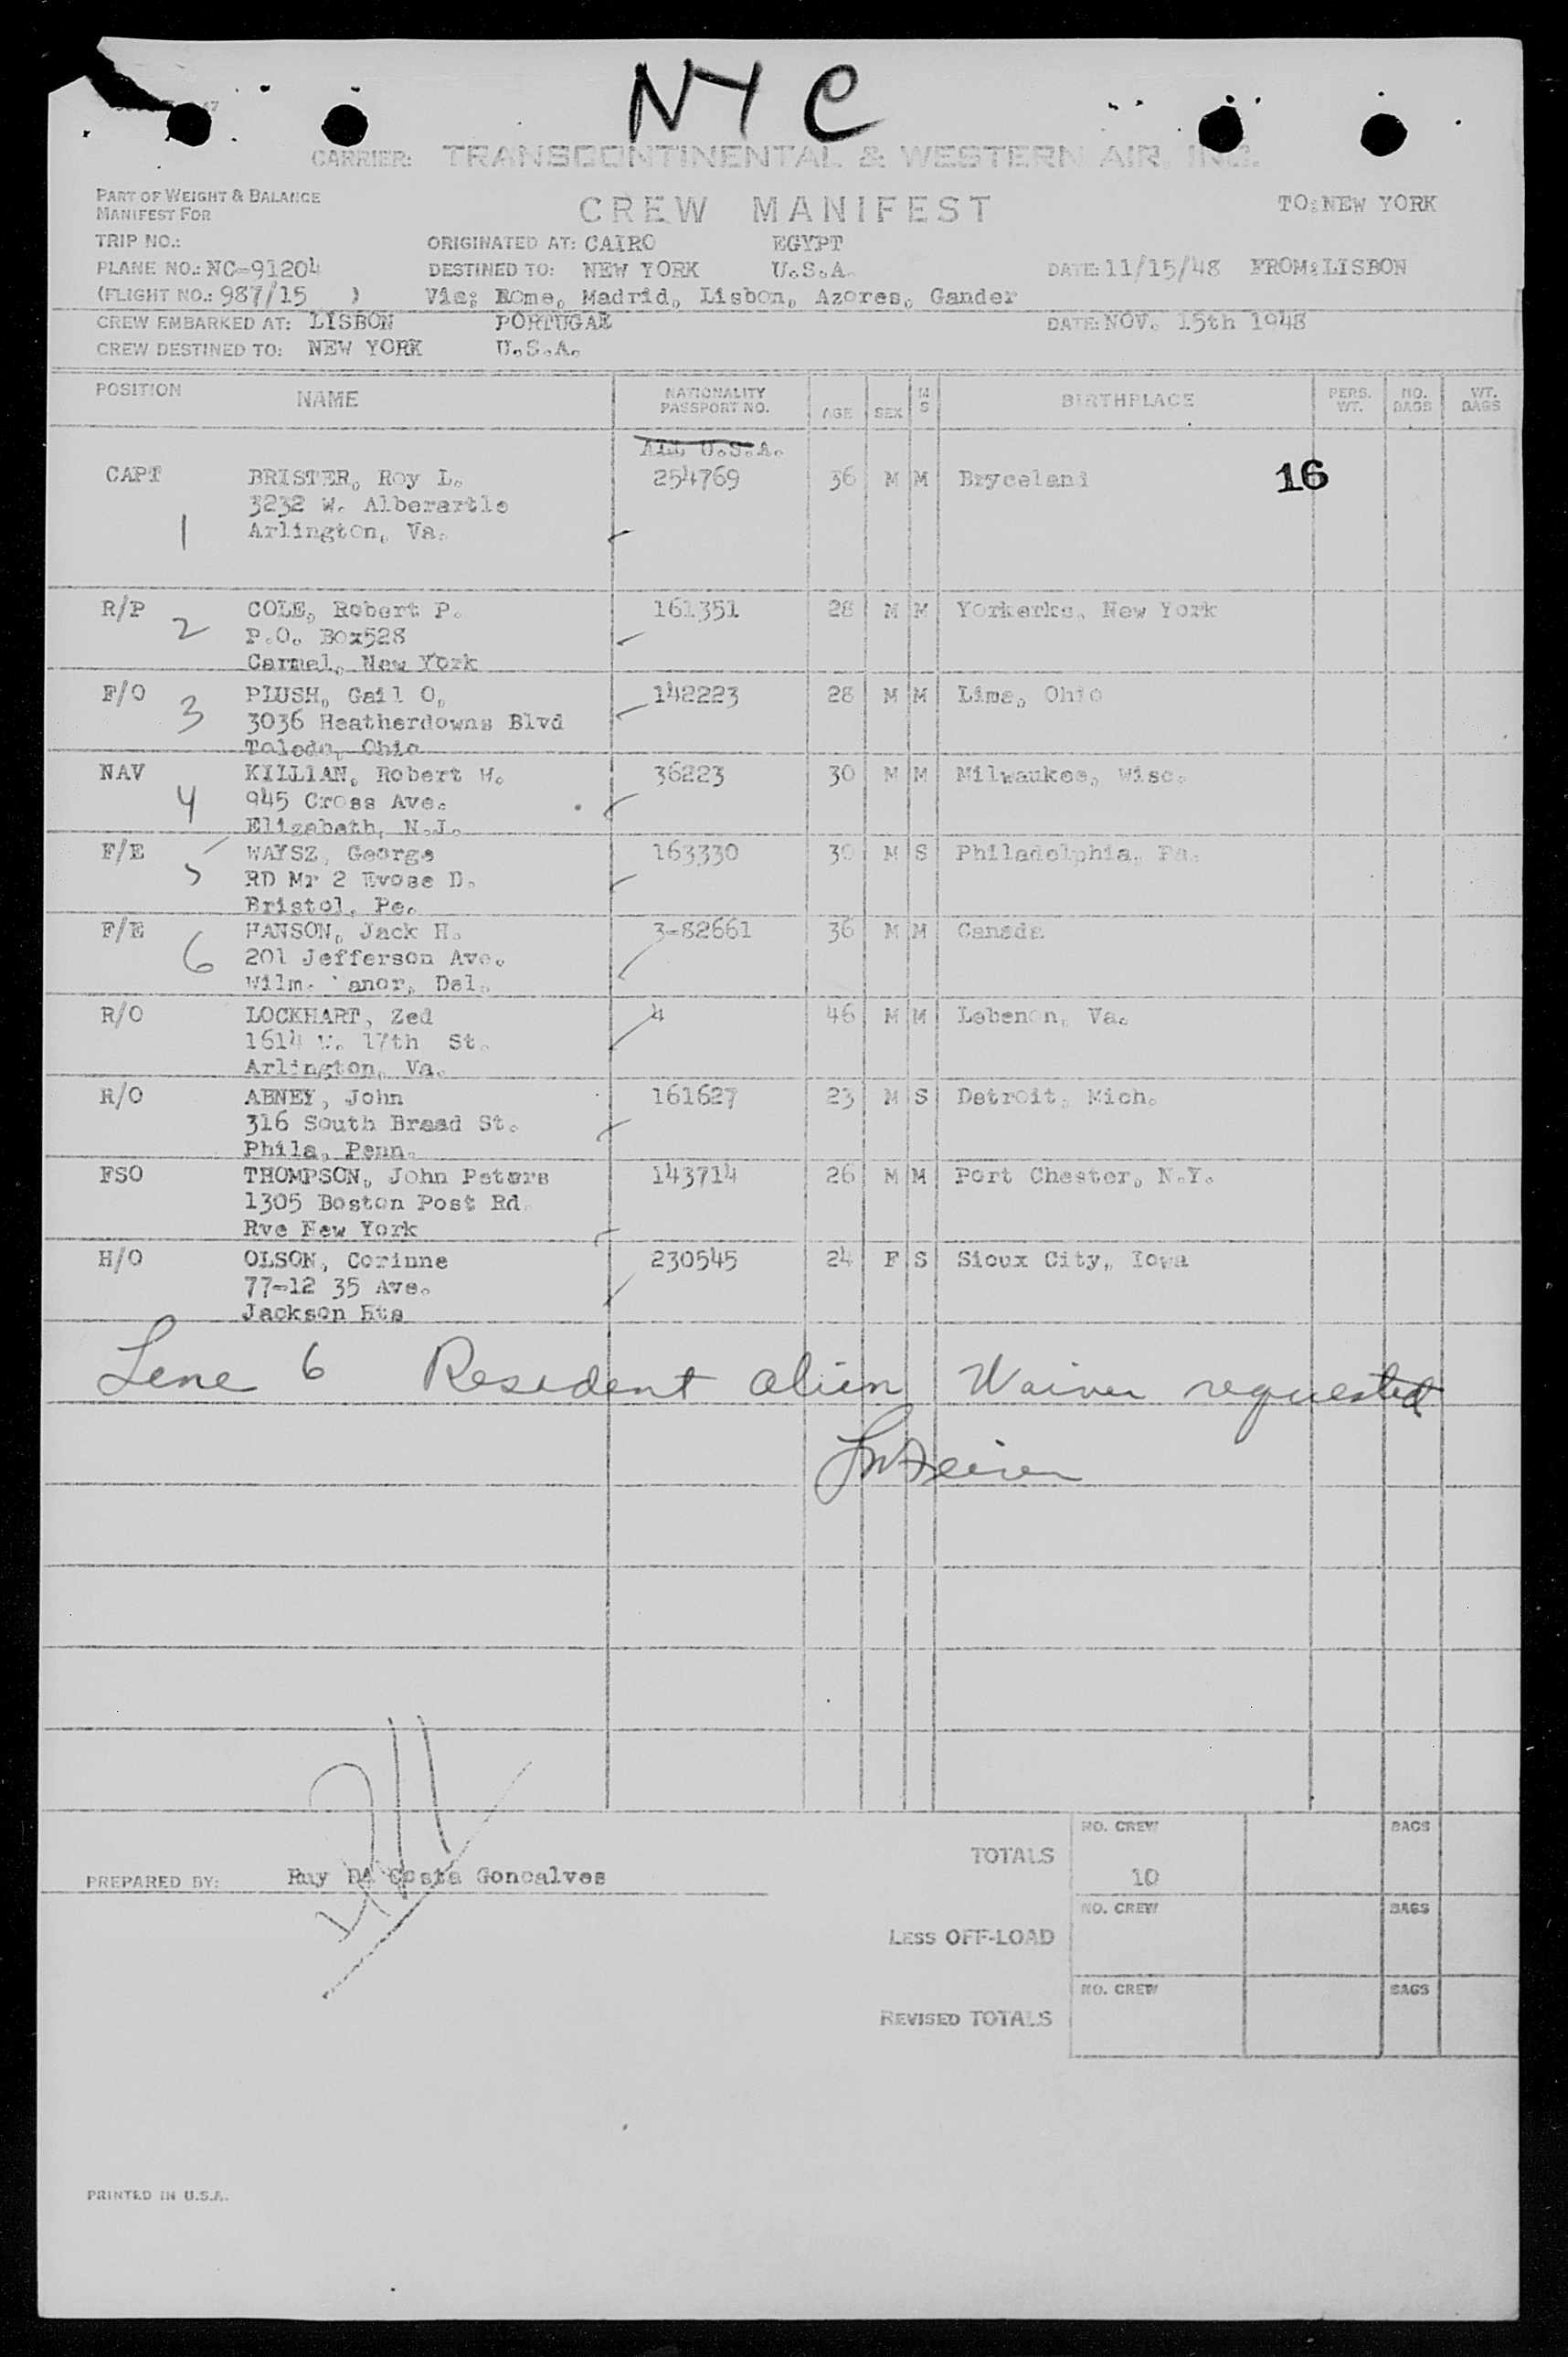 NYC
CARRIER: TRANSCONTINENTAL & WESTERN AIR, INC.
PART OF WEIGHT & BALANCE
MANIFEST FOR
CREW MANIFEST
TO: NEW YORK
TRIP NO.:
ORIGINATED AT: CAIRO EGYPT
PLANE NO.: NC-91204
DESTINED TO: NEW YORK U.S.A.
DATE: 11/15/48 FROM: LISBON
(FLIGHT NO.: 987/15 )
Via: Rome, Madrid, Lisbon, Azores, Gander
CREW EMBARKED AT: LISBON PORTUGAL
DATE: NOV. 15th 1948
CREW DESTINED TO: NEW YORK U.S.A.
POSITION NAME NATIONALITY PASSPORT NO. AGE SEX M S BIRTHPLACE PERS. WT. NO. BAGS WT. BAGS
All U.S.A.
CAPT BRISTER, Roy L. 254769 36 M M Bryceland 16
3232 W. Alberartle
1 Arlington, Va.
R/P COLE, Robert P. 161351 28 M M Yorkerks, New York
2 P.O. Box528
Carmel, New York
F/O PLUSH, Gail O, 142223 28 M M Lima, Ohio
3 3036 Heatherdowns Blvd
Toledo, Ohio
NAV KILLIAN, Robert W. 36223 30 M M Milwaukee, Wisc.
4 945 Cross Ave.
Elizabeth, N.J.
F/E WAYSZ, George 163330 30 M S Philadelphia, Pa.
5 RD Mr 2 Evose D.
Bristol, Pe.
F/E HANSON, Jack H. 3-82661 36 M M Canada
6 201 Jefferson Ave.
Wilm. anor, Del.
R/O LOCKHART, Zed 4 46 M M Lebenon, Va.
1614 17th St.
Arlington, Va.
R/O ABNEY, John 161627 23 M S Detroit, Mich.
316 South Broad St.
Phila, Penn.
FSO THOMPSON, John Peters 143714 26 M M Port Chester, N.Y.
1305 Boston Post Rd.
Rye New York
H/O OLSON, Corinne 230545 24 F S Sioux City, Iowa
77-12 35 Ave.
Jackson Hts
Line 6 Resident alien Waiver requested
TOTALS NO. CREW 10 BAGS
PREPARED BY: Ruy DA Costa Goncalves
LESS OFF-LOAD NO. CREW BAGS
REVISED TOTALS NO. CREW BAGS
PRINTED IN U.S.A.